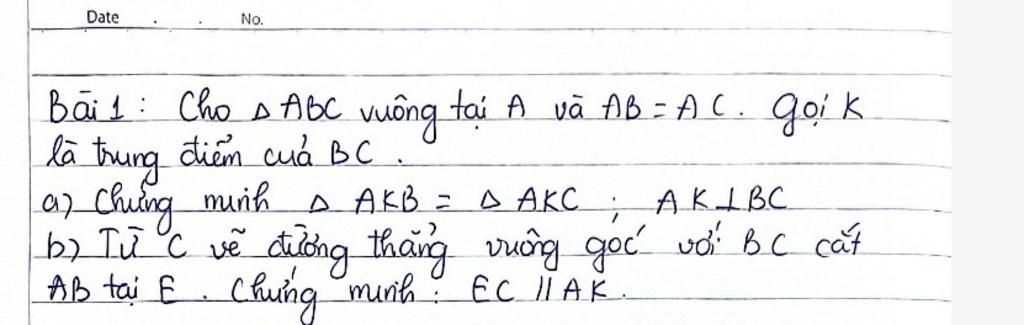 Date . . No.
Bài 1 : Cho Δ ABC vuông tại A và AB = AC. Gọi K
là trung điểm của BC.
a) Chứng minh Δ AKB = Δ AKC ; AK ⊥ BC
b) Từ C vẽ đường thẳng vuông góc với BC cắt
AB tại E. Chứng minh : EC // AK.